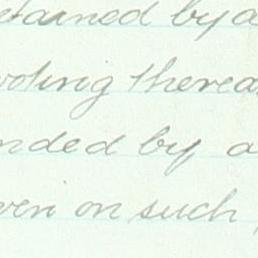 etained by a
voting therea
nded by a
ven on such